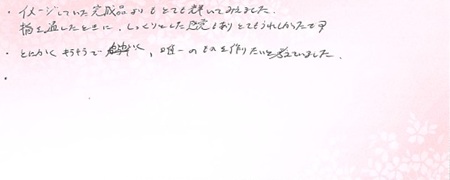 ・イメージしていた完成品よりもとても輝いてみえました。
指を通したときに、しっくりとした感じもありとてもうれしかったです
・とにかく そうそうで、唯一のものを作りたいと考えていました。
・